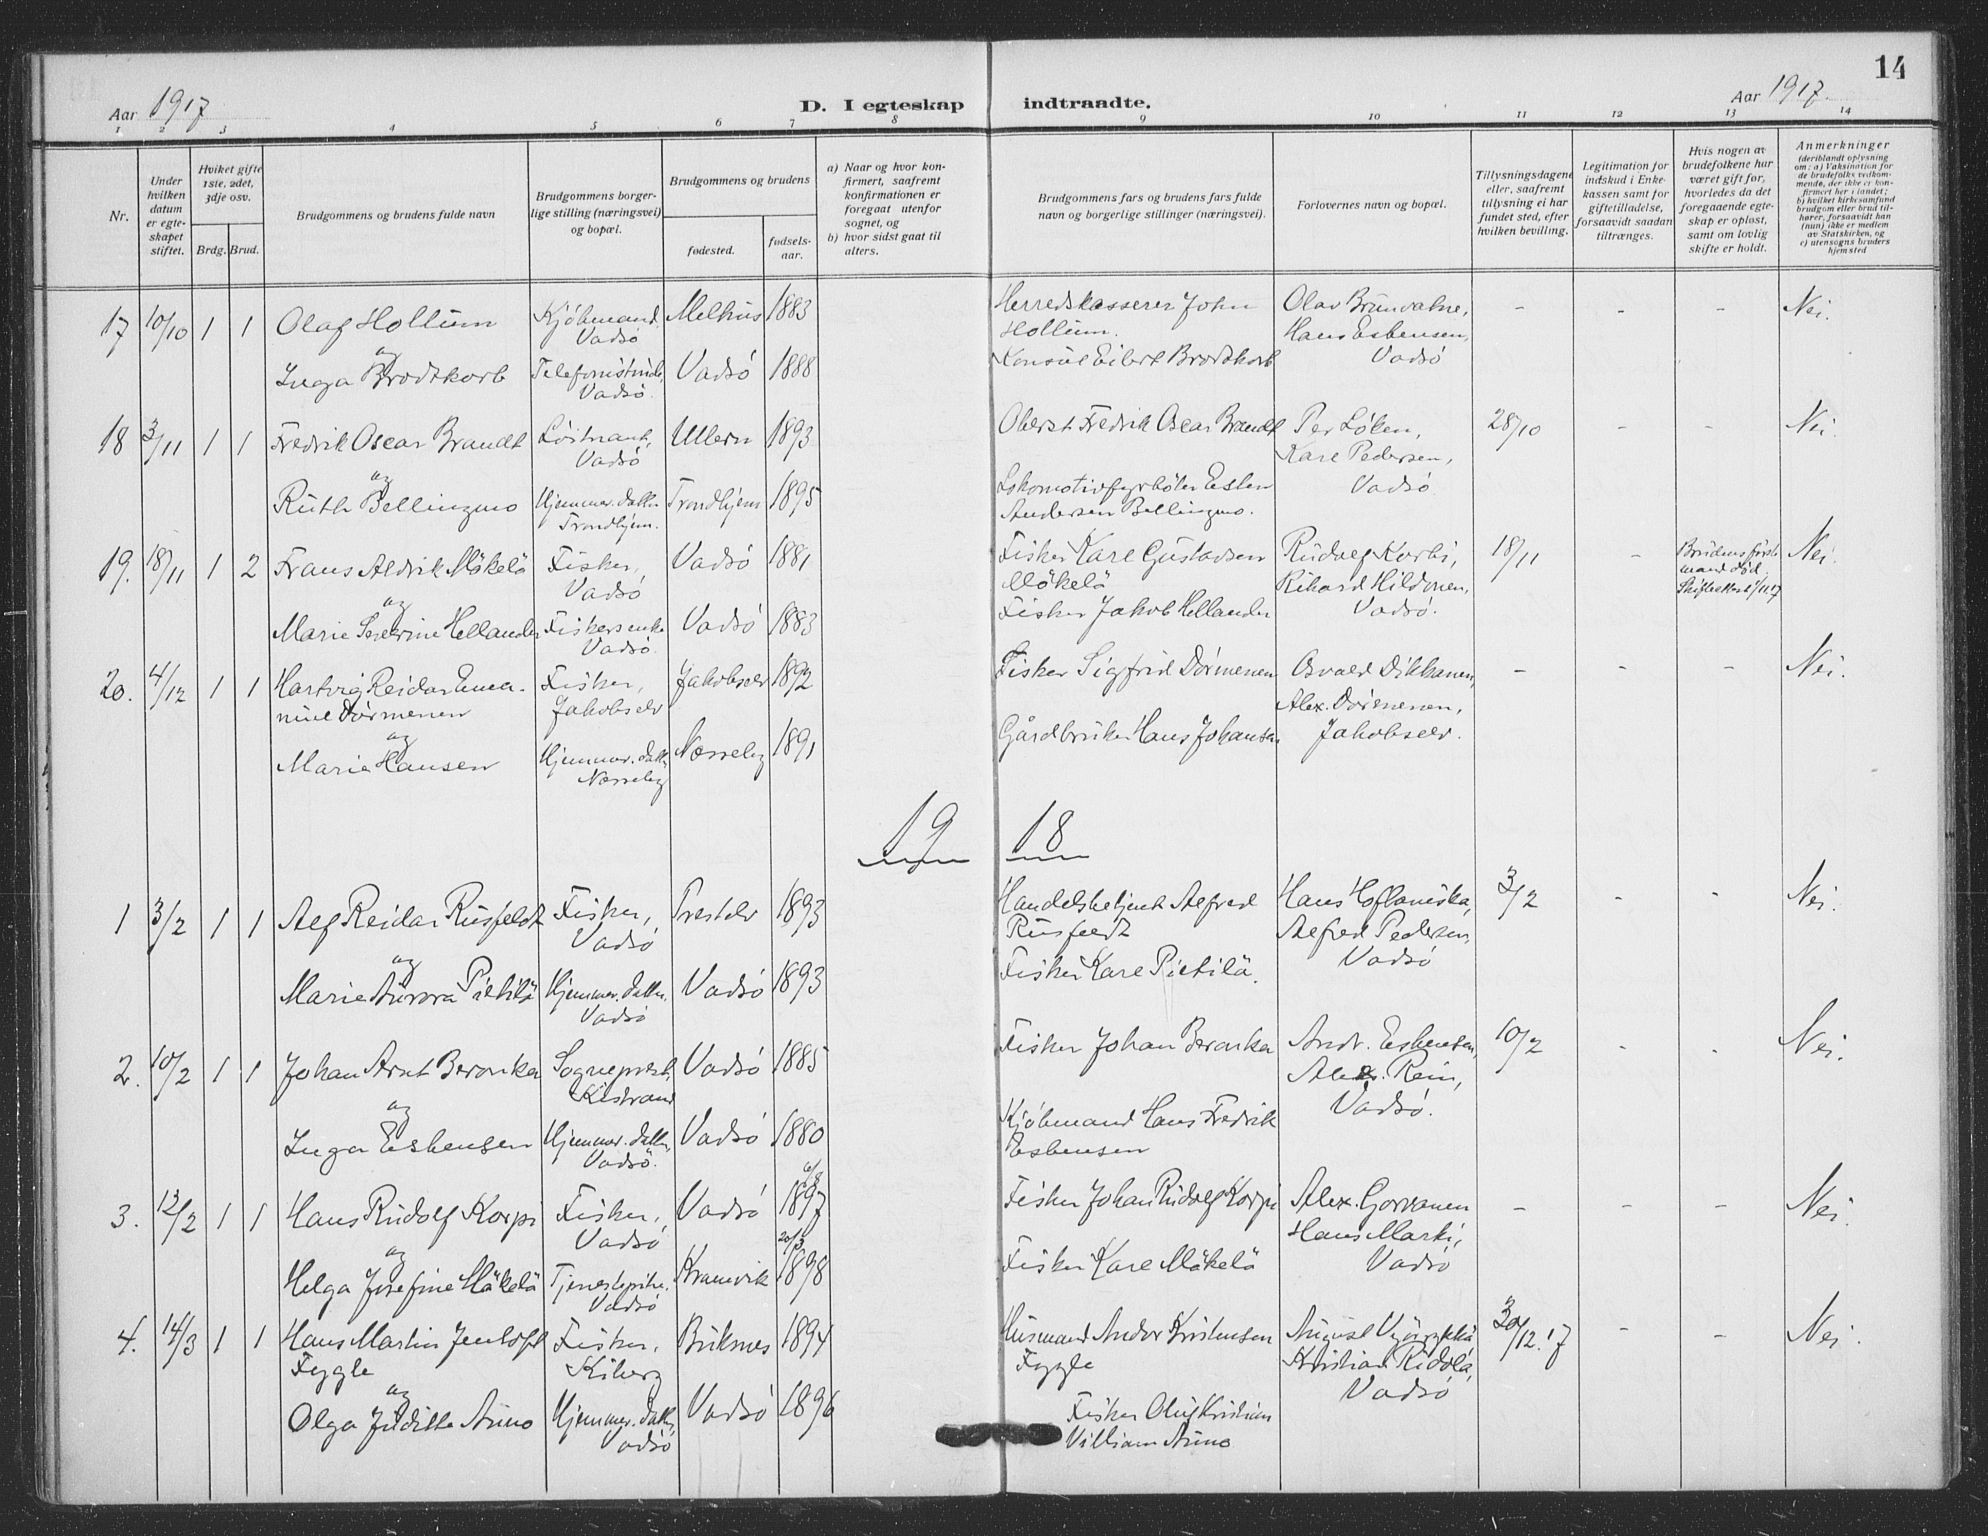 14
Aar 1917
D. I egteskap indtraadte.
Aar 1917.
1 2 3 4 5 6 7 8 9 10 11 12 13 14
Nr.
Under hvilken datum er egteskapet stiftet.
Hvilket gifte 1ste, 2det, 3dje osv.
Brdg. Brud.
Brudgommens og brudens fulde navn
Brudgommens borgerlige stilling (næringsvei) og bopæl.
Brudgommens og brudens
fødested.
fødselsaar.
a) Naar og hvor konfirmert, saafremt konfirmationen er foregaat utenfor sognet, og
b) hvor sidst gaat til alters.
Brudgommens fars og brudens fars fulde navn og borgerlige stillinger (næringsvei).
Forlovernes navn og bopæl.
Tillysningsdagene eller, saafremt tillysning ei har fundet sted, efter hvilken bevilling.
Legitimation for indskud i Enkekassen samt for giftetilladelse, forsaavidt saadan tiltrænges.
Hvis nogen av brudefolkene har været gift før, hvorledes da det foregaaende egteskap er opløst, samt om lovlig skifte er holdt.
Anmerkninger
(deriblandt oplysning om: a) Vaksination for de brudefolks vedkommende, der ikke er konfirmert her i landet; b) hvilket kirkesamfund brudgom eller brud tilhører, forsaavidt han (hun) ikke er medlem av Statskirken, og c) utensogns bruders hjemsted
17 10/10 1 1 Olaf Hollum Kjöbmand, Melhus 1883 Herredskasserer John Olav Brunvatne, - - - Nei.
Vadsö Hollum. Hans Esbensen,
og
Inga Brodtkorb Telefonistinde, Vadsö 1888 Konsul Eilert Brodtkorb Vadsö
Vadsö.
18 3/11 1 1 Fredrik Oscar Brandt Löitnant, Ullern 1893 Oberst Fredrik Oscar Brandt Per Löken, 28/10 - - Nei.
Vadsö Karl Pedersen,
og
Ruth Bellingmo Hjemmev. datter Trondhjem 1895 Lokomotivfyrböter Esten Vadsö
Trondhjem. Andersen Bellingmo.
19. 18/11 1 2 Frans Aldrik Mäkelä Fisker, Vadsö 1881 Fisker Karl Gustavsen Rudolf Korbi, 18/11 - Brudens første Nei.
Vadsö Mäkelä Rikard Hildonen, mand död.
og
Marie Severine Hellander Fiskersenke Vadsö 1883 Fisker Jakob Hellander Vadsö.
Vadsö.
20. 4/12 1 1 Hartvig Reidar Ema- Fisker, Jakobselv 1892 Fisker Sigfrid Dörmenen Osvald Dikkanen, - - - Nei.
nuel Dörmenen Jakobselv Alex. Dörmenen,
og
Marie Hansen Hjemmev. datt. Nesseby 1891 Gårdbruker Hans Johansen Jakobselv.
Nesseby
19 18
1 3/2 1 1 Alf Reidar Rusfeldt Fisker, Prestelv 1893 Handelsbetjent Alfred Hans 3/2 - - Nei.
Vadsö Rusfeldt Alfred Pedersen,
og
Marie Aurora Pietilä Hjemmev. datter Vadsö 1893 Fisker Karl Pietilä. Vadsö
Vadsö
2. 10/2 1 1 Johan Arnt Beronka Sogneprest, Vadsö 1885 Fisker Johan Beronka Andr. Esbensen, 10/2 - - Nei.
Kistrand Alex. Rein,
og
Inga Esbensen Hjemmev. datter, Vadsö 1880 Kjöbmand Hans Fredrik Vadsö.
Vadsö. Esbensen
3. 12/2 1 1 Hans Rudolf Korpi Fisker, Vadsö 1897 Fisker Johan Rudolf Korpi Alex. Gorvanen - - - Nei.
Vadsö Hans Marki,
og 20/3
Helga Josefine Mäkelä Tjenestepike. Kramvik 1898 Fisker Karl Mäkelä Vadsö
Vadsö
4. 14/3 1 1 Hans Martin Jentoft Fisker, Buksnes 1894 Husmand Andor Kristensen August 30/12.17 - - Nei.
Fygle Kiberg Fygle Kristian Ridola,
og
Olga Juditte Aune Hjemmev. datt. Vadsö 1896 Fisker Oluf Kristian Vadsö
Vadsö Villiam Aune